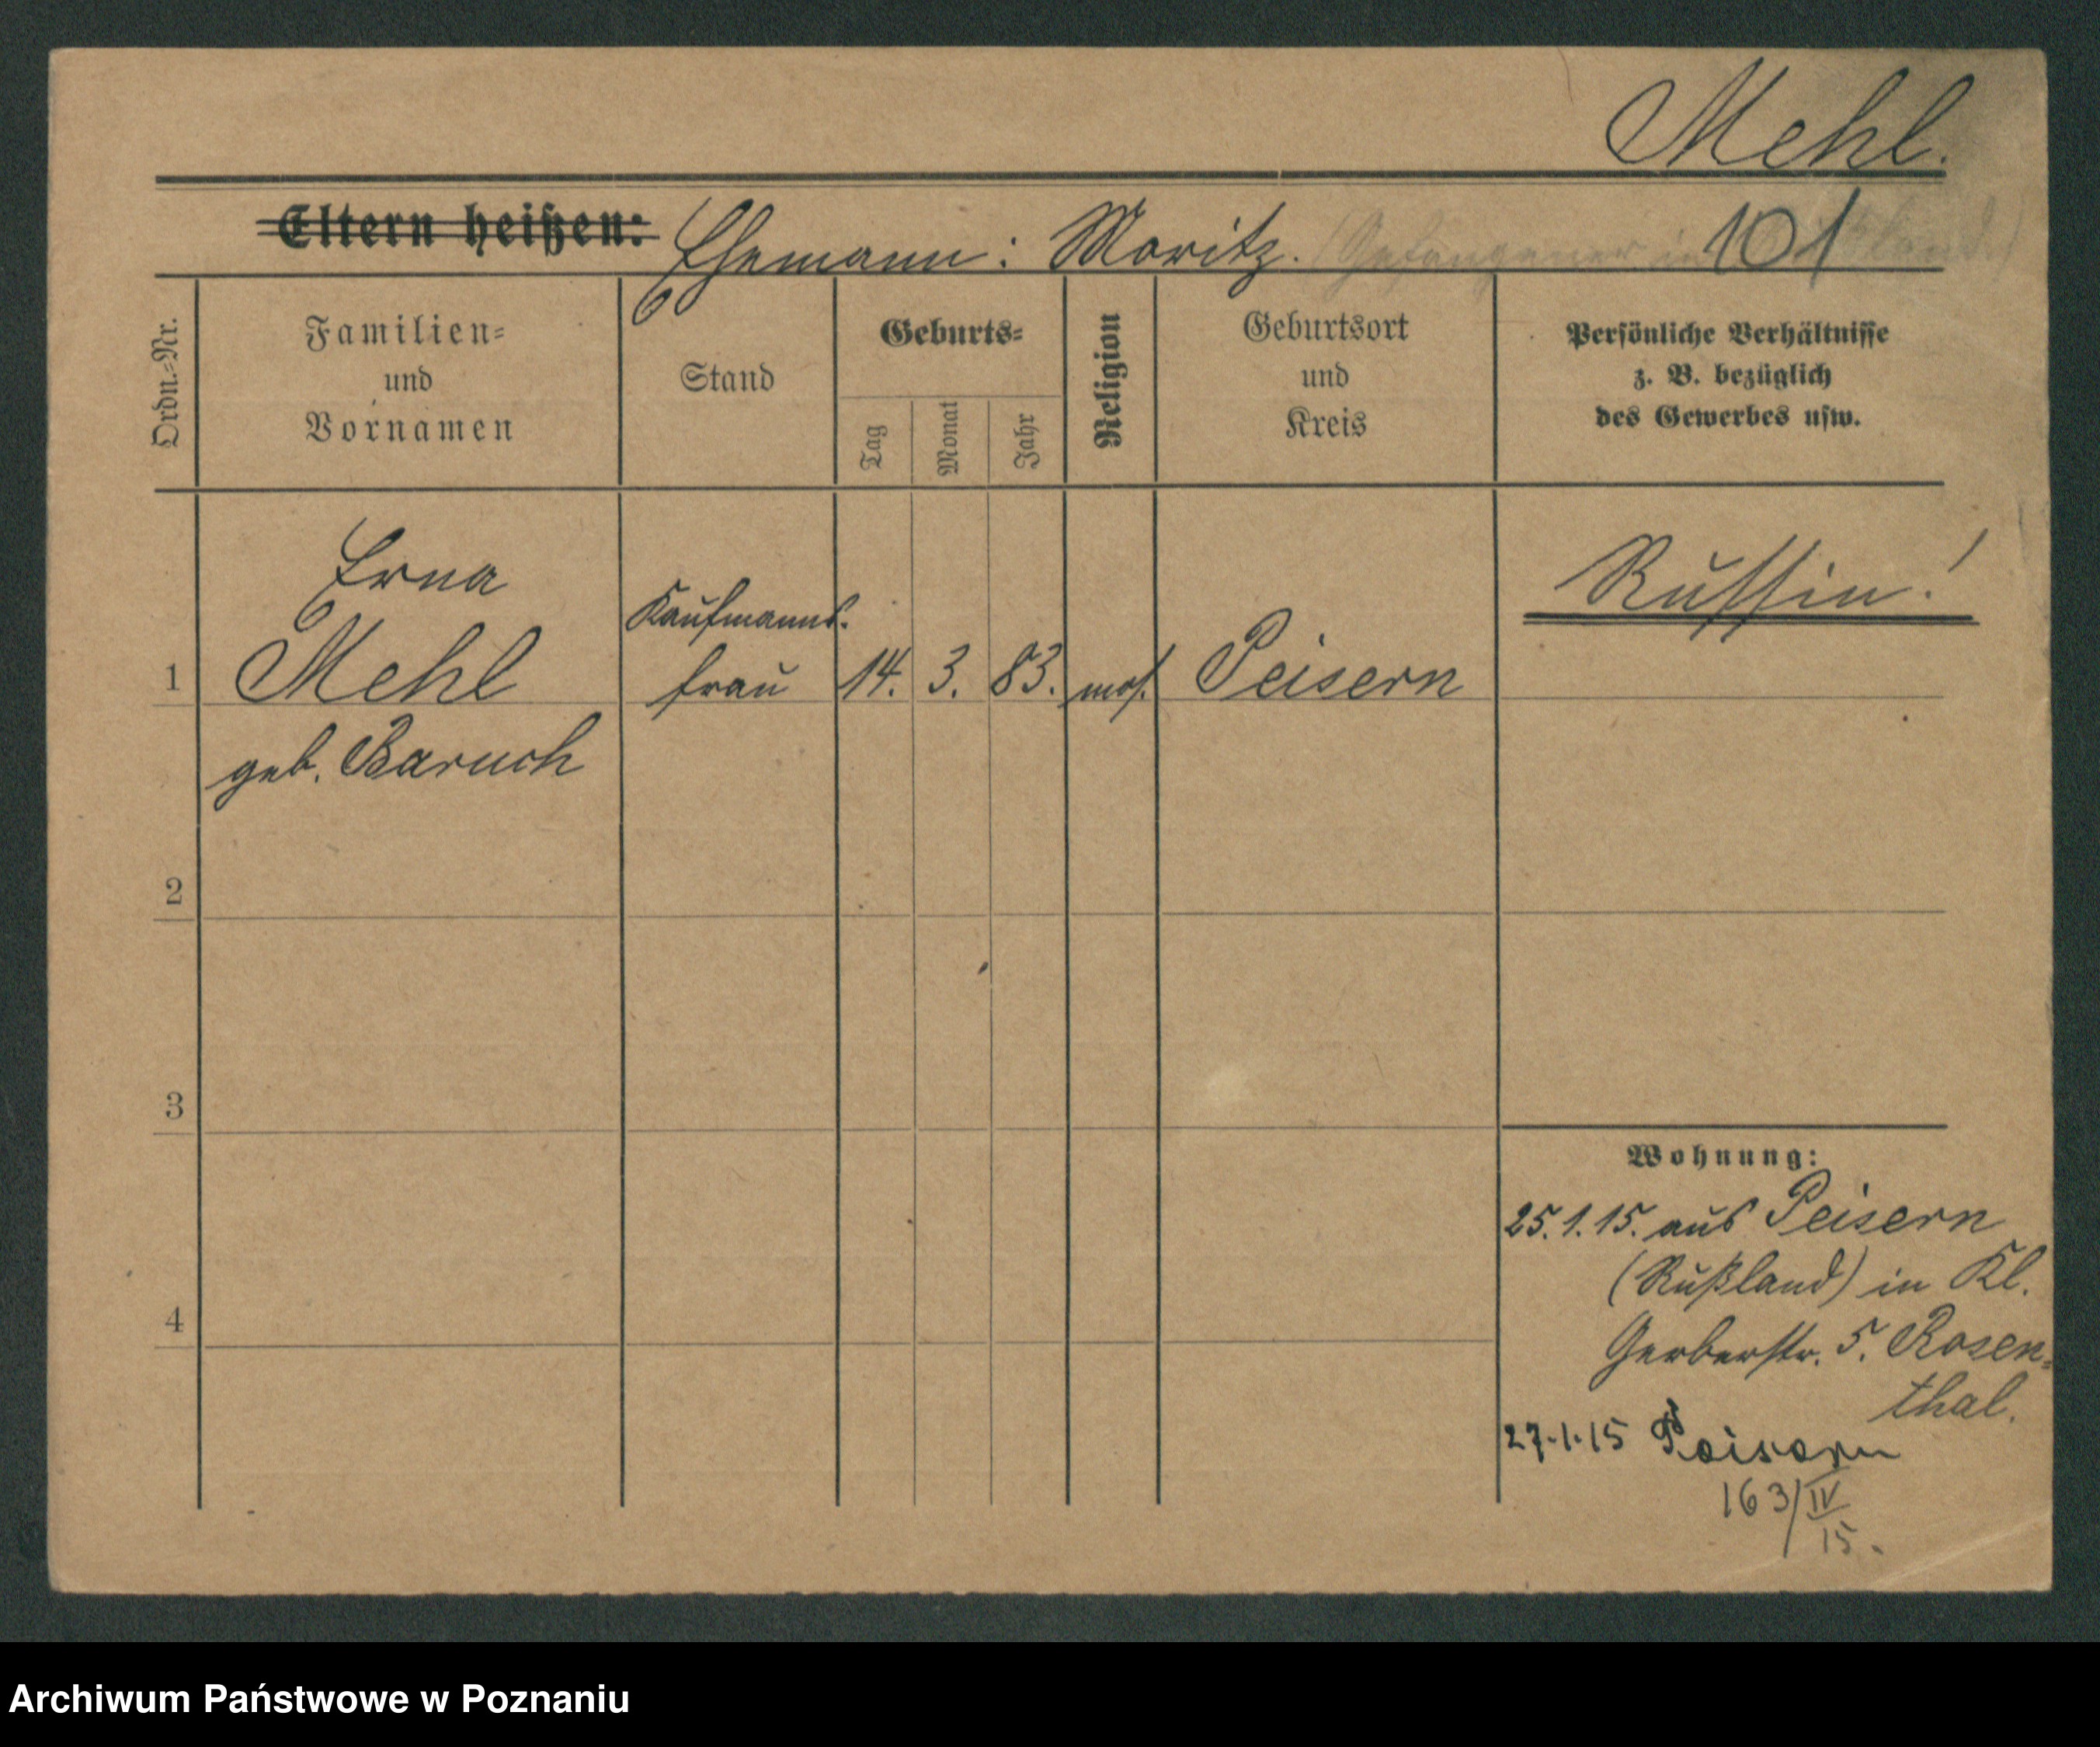 Mehl.
Eltern heißen: Ehemann: Moritz. (Gefangener in 101
Ordn.-Nr.
Familien-
und
Vornamen
Stand
Geburts-
Tag
Monat
Jahr
Religion
Geburtsort
und
Kreis
Persönliche Verhältnisse
z. B. bezüglich
des Gewerbes usw.
Erna
Kaufmanns-
Russin!
1 Mehl frau 14. 3. 83. mos. Peisern
geb. Baruch
2
3
Wohnung:
25.1.15. aus Peisern
(Rußland) in Kl.
4
Gerberstr. 5. Rosen-
thal.
27.1.15 Peisern
163/IV
15.
Archiwum Państwowe w Poznaniu